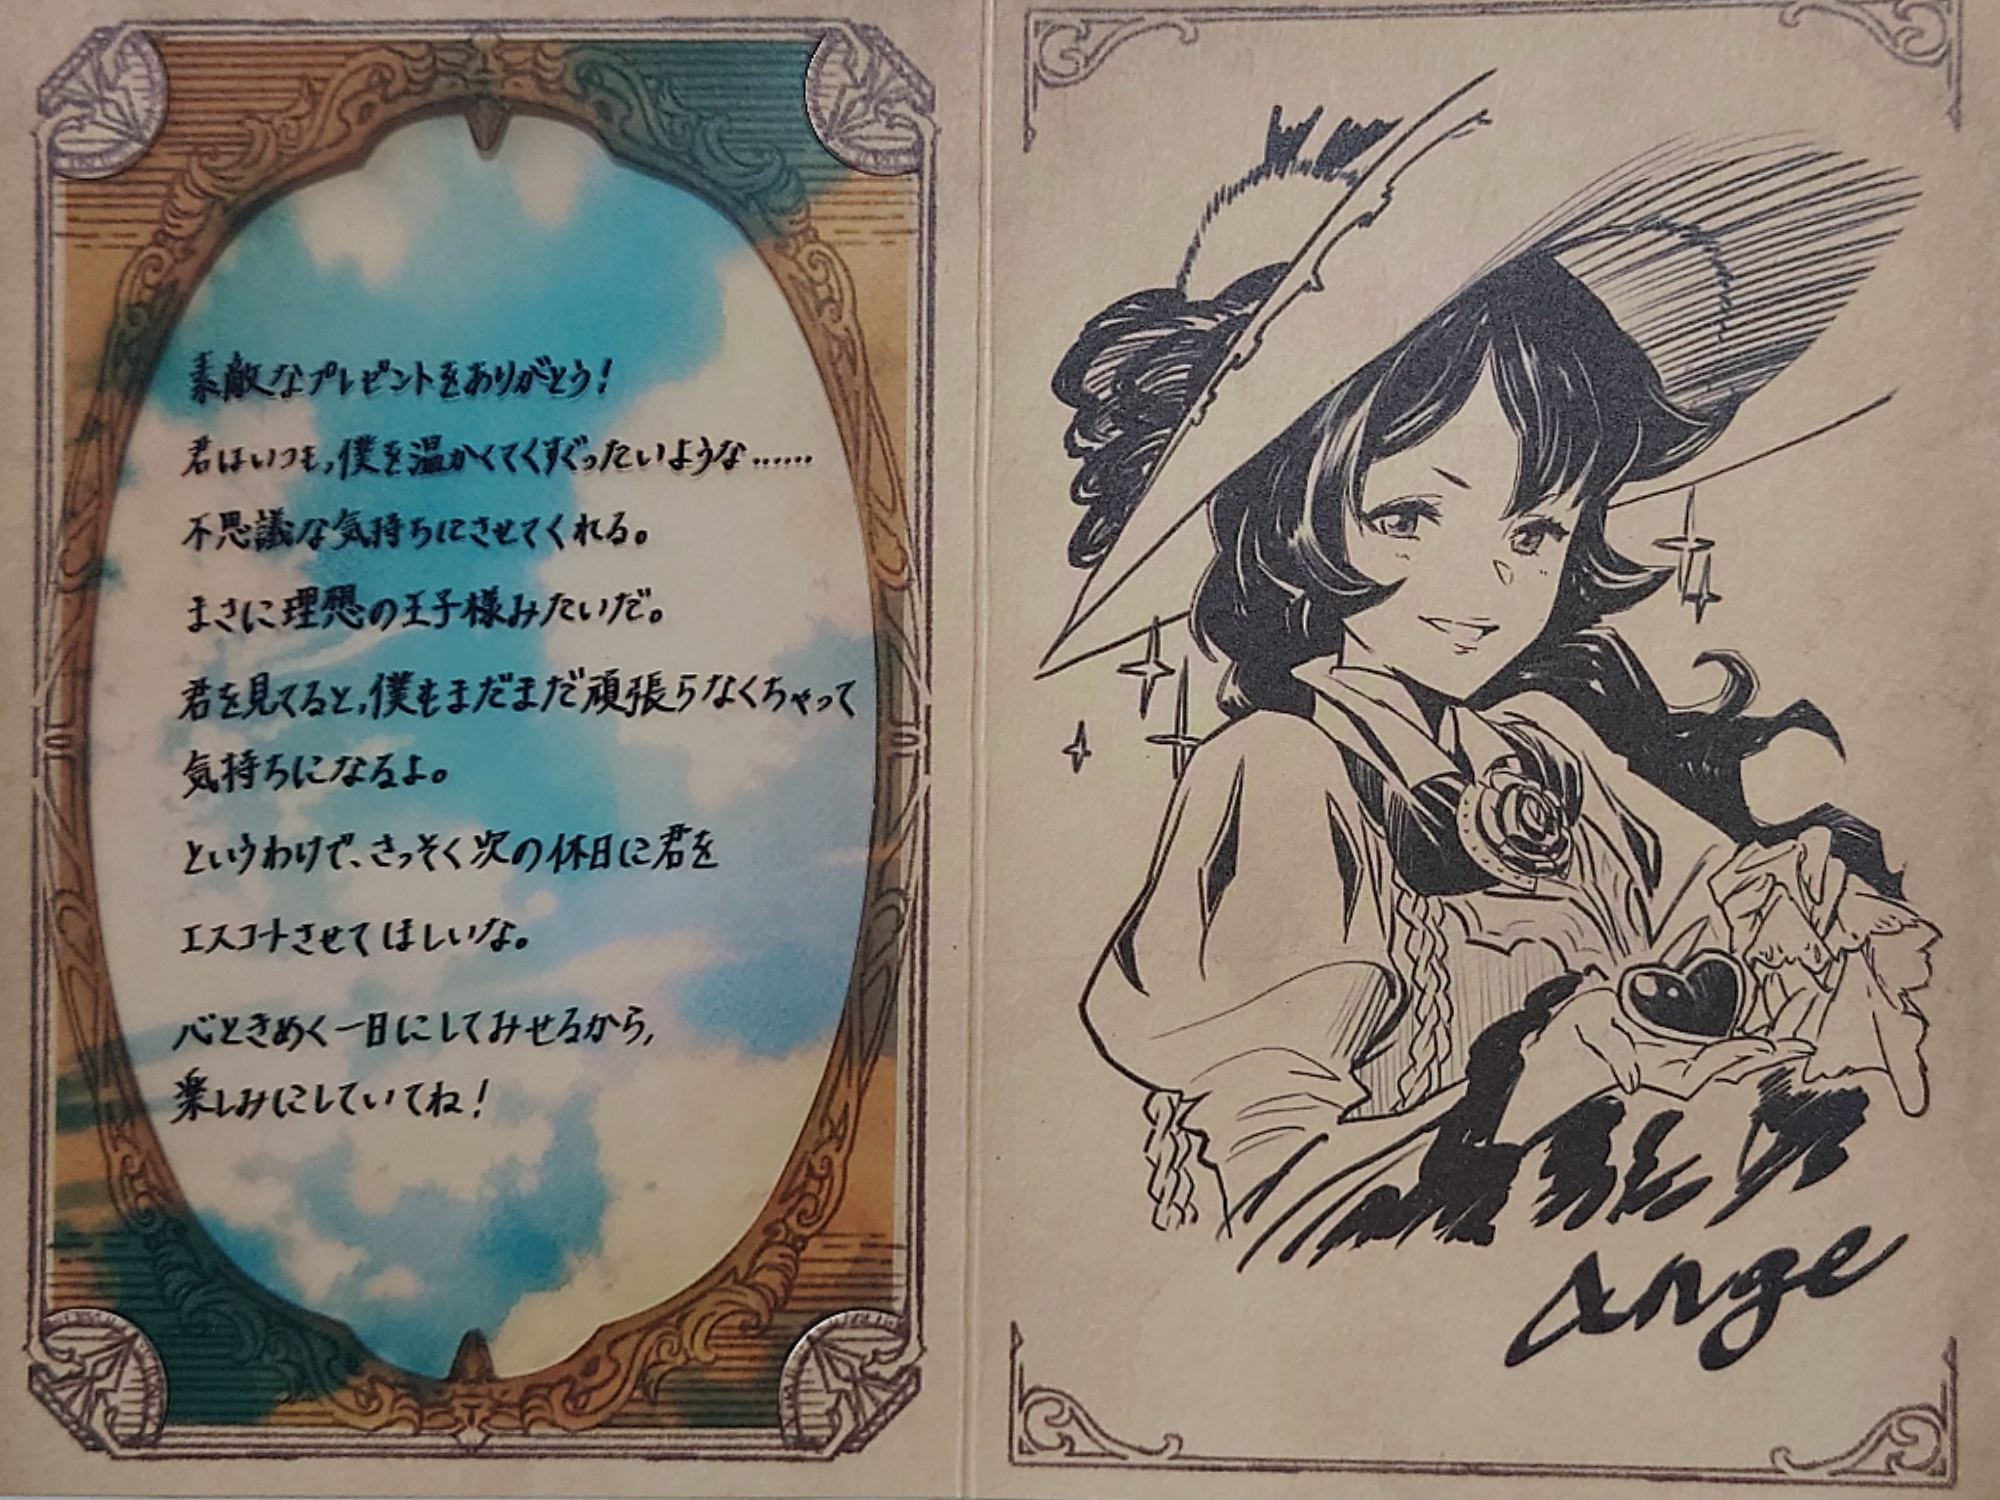 素敵なプレゼントをありがとう!
君はいつも,僕を温かくてくすぐったいような……
不思議な気持ちにさせてくれる。
まさに理想の王子様みたいだ。
君を見てると,僕もまだまだ頑張らなくちゃって
気持ちになるよ。
というわけで、さっそく次の休日に君を
エスコートさせてほしいな。
心ときめく一日にしてみせるから,
楽しみにしていてね!
Ange